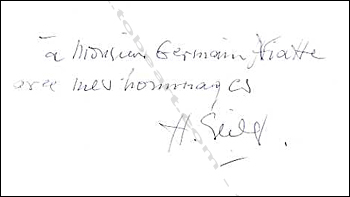 à Monsieur Germain Viatte
avec mes hommages
H.